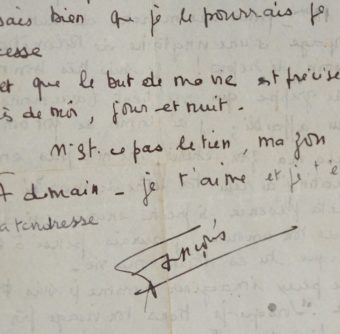 sais bien que je le pourrais je
cesse
et que le but de ma vie est précise
s de moi, jour et nuit.
N'est-ce pas le tien, ma
A demain - je t'aime et je t'e
a tendresse
François